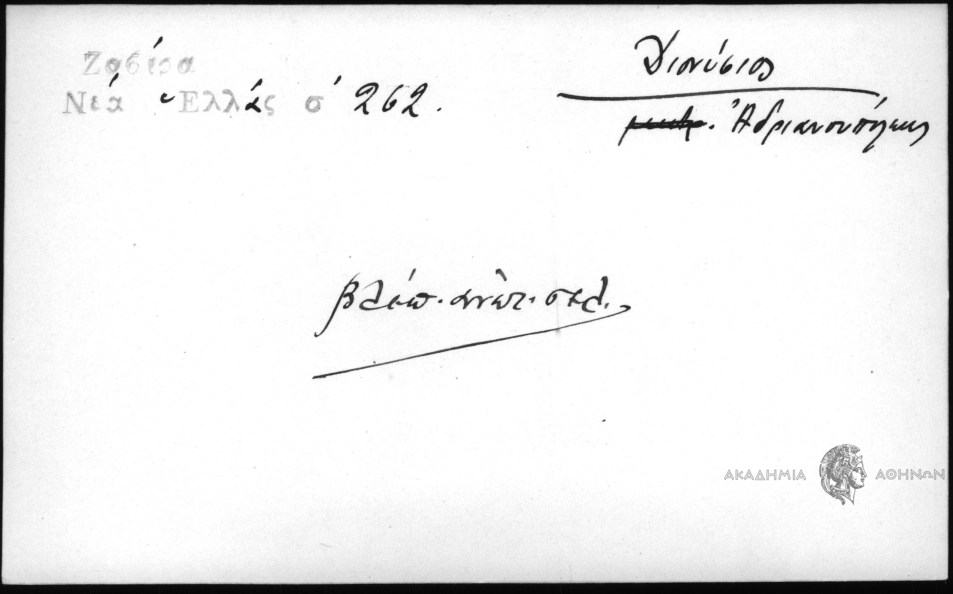 Ζαβίρα
Νέα Ἑλλάς σ 262.
Διονύσιος
μητρ. Ἀδριανουπόλεως
βλέπ. ἀνωτ. σελ.
ΑΚΑΔΗΜΙΑ ΑΘΗΝΩΝ